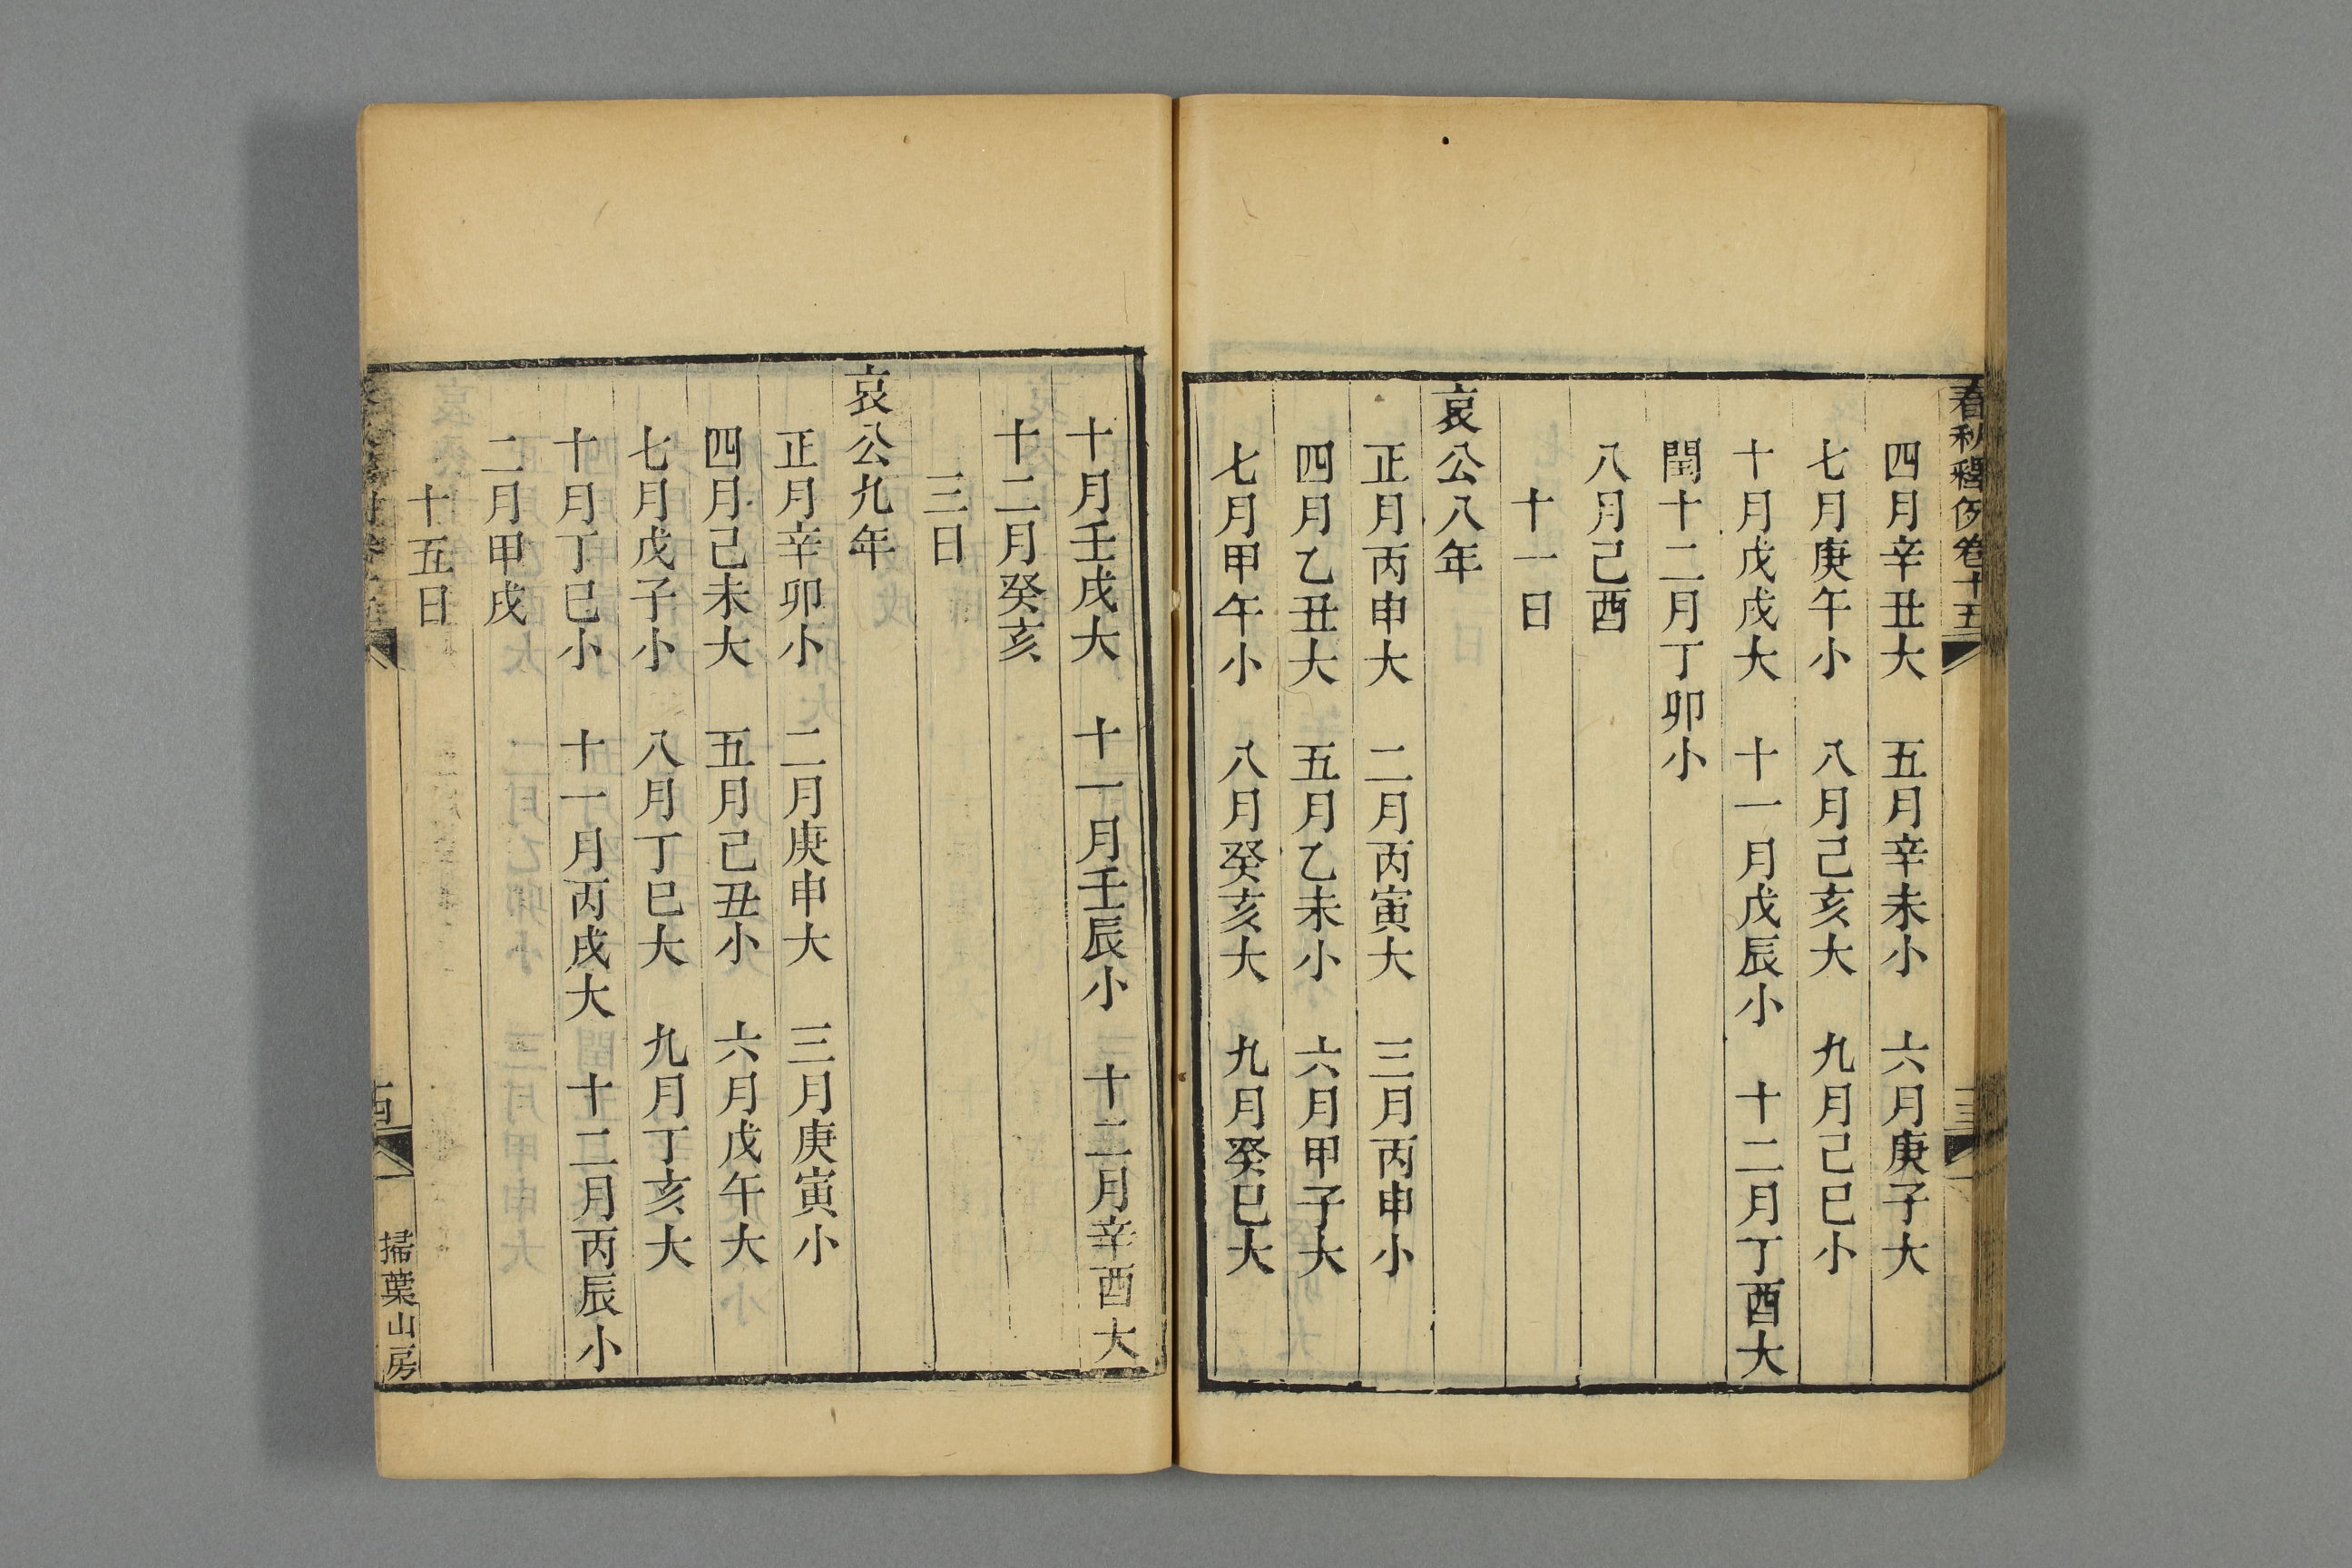 春秋釋例卷十五
四月辛丑大　五月辛未小　六月庚子大
七月庚午小　八月己亥大　九月己巳小
十月戊戌大　十一月戊辰小　十二月丁酉大
閏十二月丁卯小
八月己酉
十一日
哀公八年
正月丙申大　二月丙寅大　三月丙申小
四月乙丑大　五月乙未小　六月甲子大
七月甲午小　八月癸亥大　九月癸巳大
十月壬戌大　十一月壬辰小　十二月辛酉大
十二月癸亥
三日
哀公九年
正月辛卯小　二月庚申大　三月庚寅小
四月己未大　五月己丑小　六月戊午大
七月戊子小　八月丁巳大　九月丁亥大
十月丁巳小　十一月丙戌大　十二月丙辰小
二月甲戌
十五日
掃葉山房